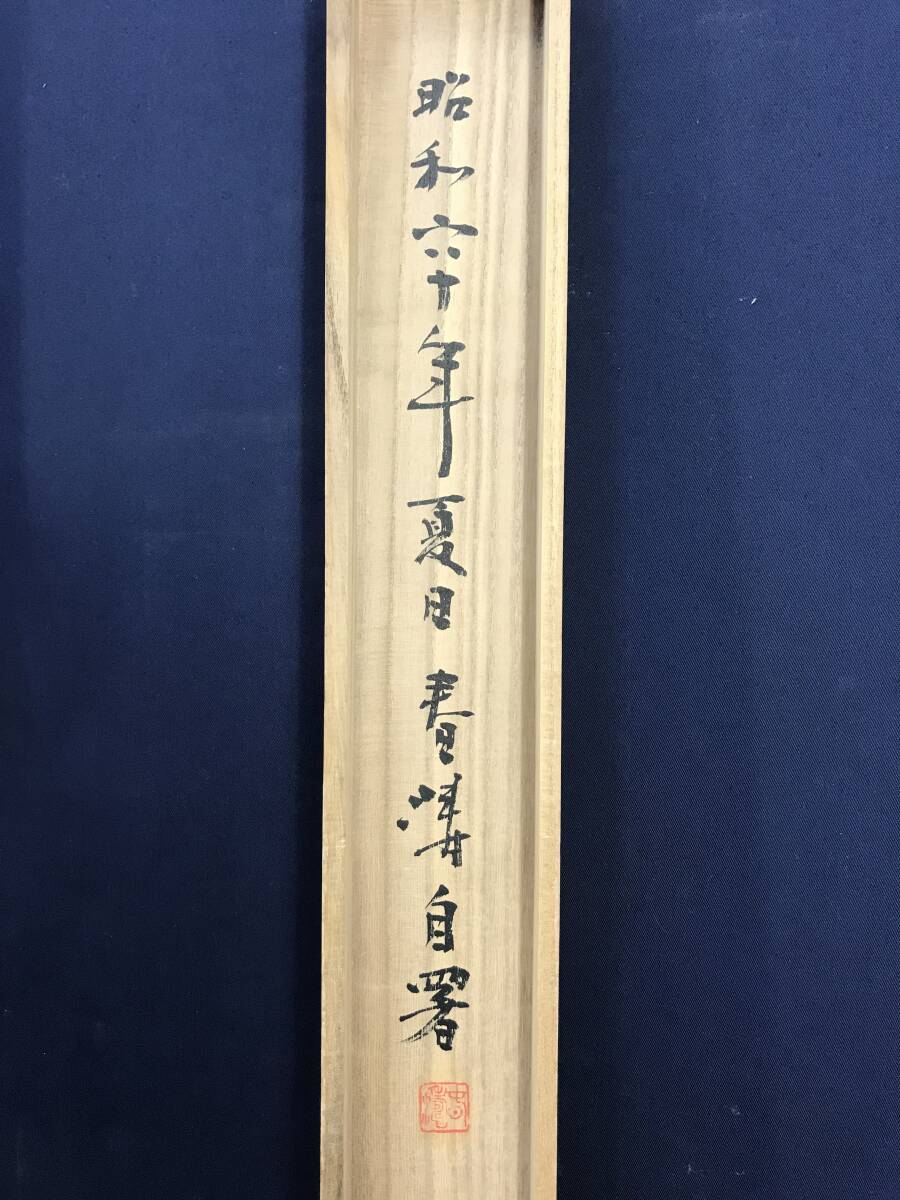 昭和六十年夏日 春溝自署